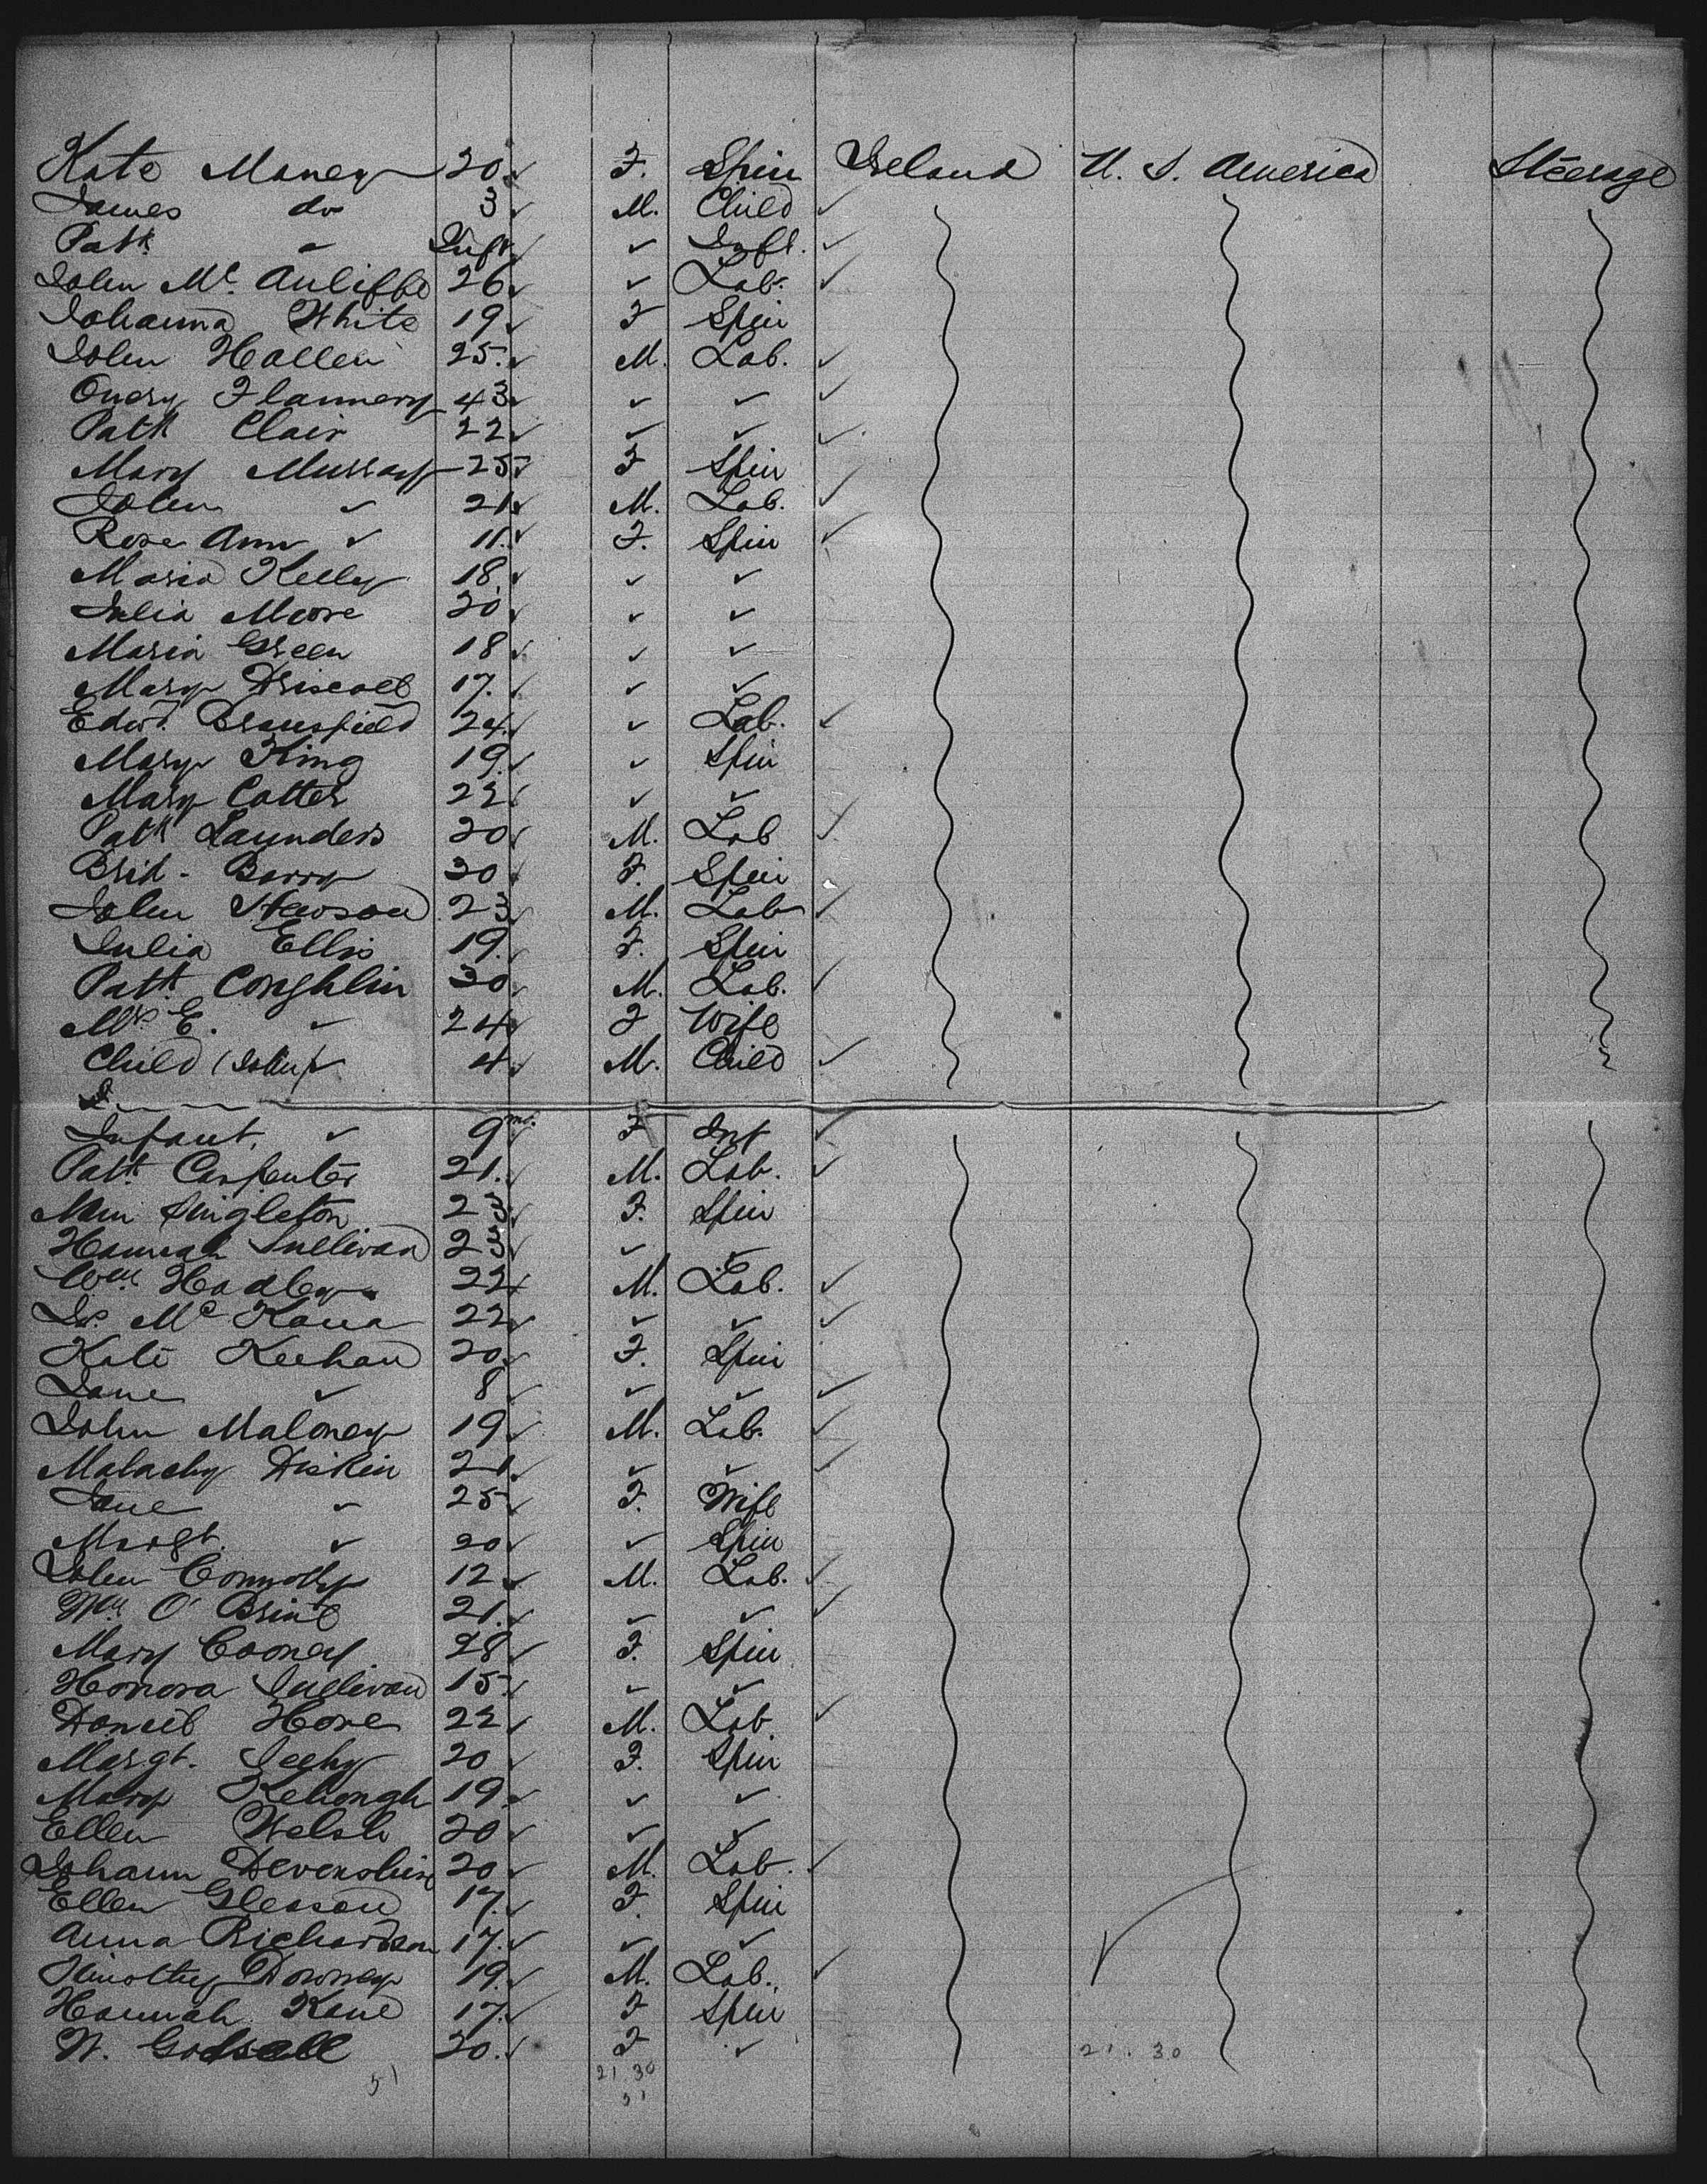 Kate Maney 20 ✓ F. Spin Ireland U. S. America Steerage
James do 3 ✓ M. Child ✓
Patk. " Inft ✓ ✓ Inft. ✓
John Mc. Auliffe 26 ✓ ✓ Lab. ✓
Johanna White 19 ✓ F Spin
John Hallen 25. ✓ M. Lab. ✓
Flannery 43 ✓ ✓ ✓ ✓
Patk Clair 22 ✓ ✓ ✓ ✓
Mary Murray 25 ✓ F Spin
John ✓ 21 ✓ M. Lab. ✓
Rose Ann ✓ 11. ✓ F. Spin ✓
Maria Kelly 18 ✓ ✓ ✓
Julia Moore 20 ✓ ✓ ✓
Maria Green 18 ✓ ✓ ✓
Mary Driscoll 17. ✓ ✓ ✓
Edwd. Bransfield 24 ✓ ✓ Lab. ✓
Mary King 19 ✓ ✓ Spin
Mary Cotter 22 ✓ ✓ ✓
Patk Saunders 20 ✓ M. Lab ✓
Brid - Barry 30 ✓ F. Spin
John Hewson 23 ✓ M. Lab ✓
Julia Ellis 19. ✓ F. Spin
Patk. Coughlin 30 ✓ M. Lab. ✓
Mrs E. ✓ 24 ✓ F Wife
Child (John) ✓ 4 ✓ M. Child ✓
Infant, ✓ 9 mo. ✓ F Inf ✓
Patk. Carpenter 21. ✓ M. Lab. ✓
Singleton 23 ✓ F. Spin
Hannah Sullivan 23 ✓ ✓ ✓
Wm Hadley 22 ✓ M. Lab. ✓
Js. Mc Kana 22 ✓ ✓ ✓ ✓
Kate Keehan 20 ✓ F. Spin
Jane ✓ 8 ✓ ✓ ✓ ✓
John Maloney 19 ✓ M. Lab. ✓
Malachy Diskin 21 ✓ ✓ ✓ ✓
Jane ✓ 25 ✓ F. Wife
Margt. ✓ 20 ✓ ✓ Spin
John Connolly 12 ✓ M. Lab. ✓
Wm O' Brine 21. ✓ ✓ ✓ ✓
Mary Cooney 28 ✓ F. Spin
Honora Sullivan 15 ✓ ✓ ✓
Daniel Hore 22 ✓ M. Lab ✓
Margt. Seehy 20 ✓ F. Spin
Mary Kehough 19 ✓ ✓ ✓
Ellen Welsh 20 ✓ ✓ ✓
Johann Devonshire 20 ✓ M. Lab. ✓
Ellen Gleeson 17. ✓ F. Spin
Anna Richardson 17. ✓ ✓ ✓
Timothy Downey 19. ✓ M. Lab. ✓
Hannah Kane 17. ✓ F Spin
W. Godsall 20. ✓ F ✓ 21. 30
51 21 30
51